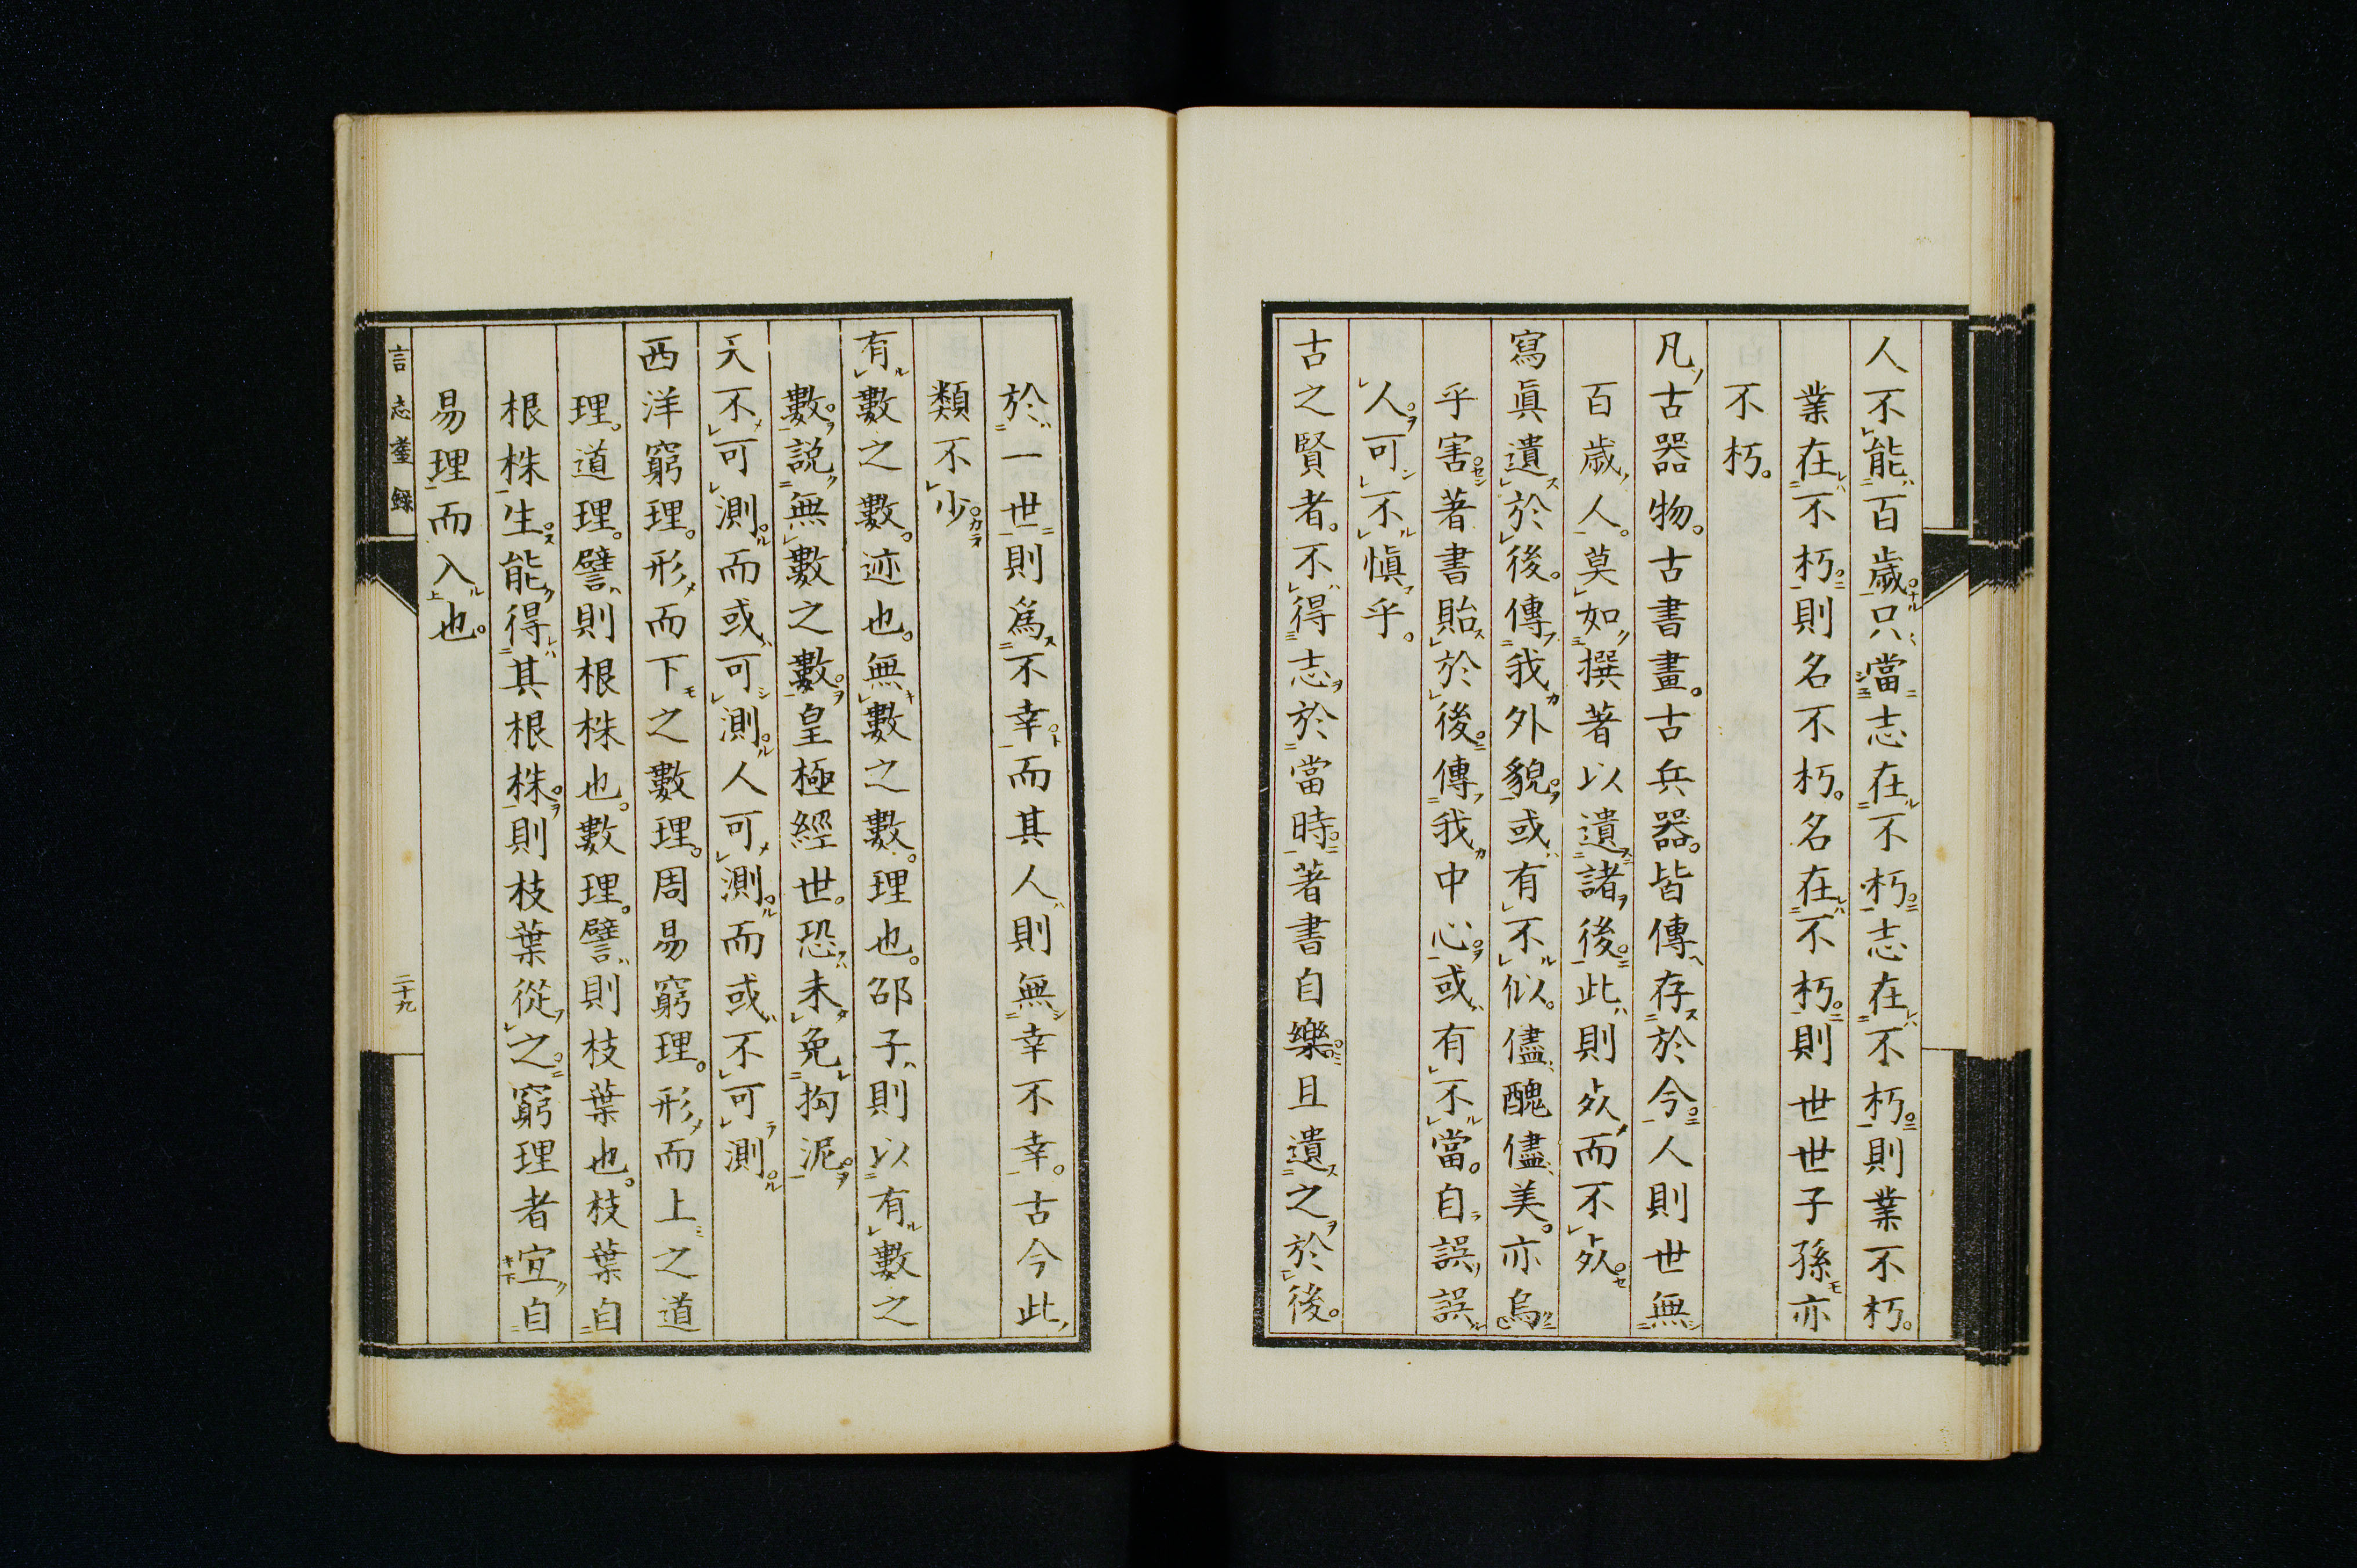 人不能百歳只當志在不朽志在不朽則業不朽。
業在不朽則名不朽。名在不朽則世世子孫亦
不朽。
凡古器物。古書畫。古兵器。皆傳存於今人則世無
百歳人。莫如撰著以遺諸後此則死而不死
寫眞遺於後。傳我外貌或有不似。儘醜儘美。亦烏
乎害著書貽於後傳我中心或有不當。自誤誤
人。可不愼乎。
古之賢者。不得志於當時著書自樂。且遺之於後。
於一世則爲不幸而其人則無幸不幸。古今此
類不少
有數之數。迹也。無數之數。理也。邵子則以有數之
數。説無數之數皇極經世。恐未免拘泥
天不可測而或可測人可測而或不可測
西洋窮理。形而下之數理。周易窮理。形而上之道
理。道理。譬則根株也。數理。譬則枝葉也。枝葉自
根株生能得其根株則枝葉從之窮理者宜自
易理而入也。
言志耋録
二十九